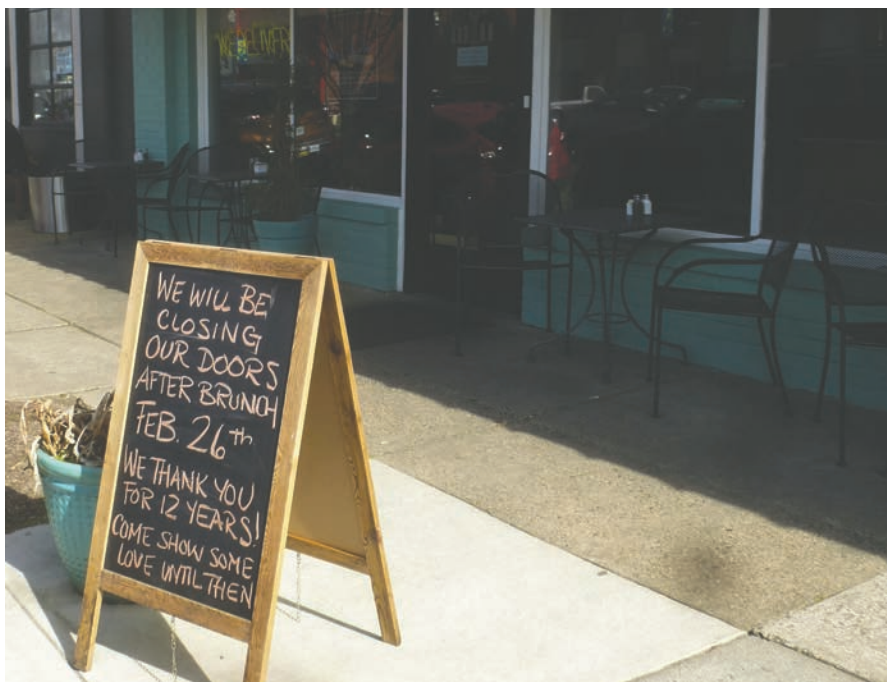 WE DELIVER
WE WILL BE
CLOSING
OUR DOORS
AFTER BRUNCH
FEB. 26th
WE THANK YOU
FOR 12 YEARS!
COME SHOW SOME
LOVE UNTIL THEN